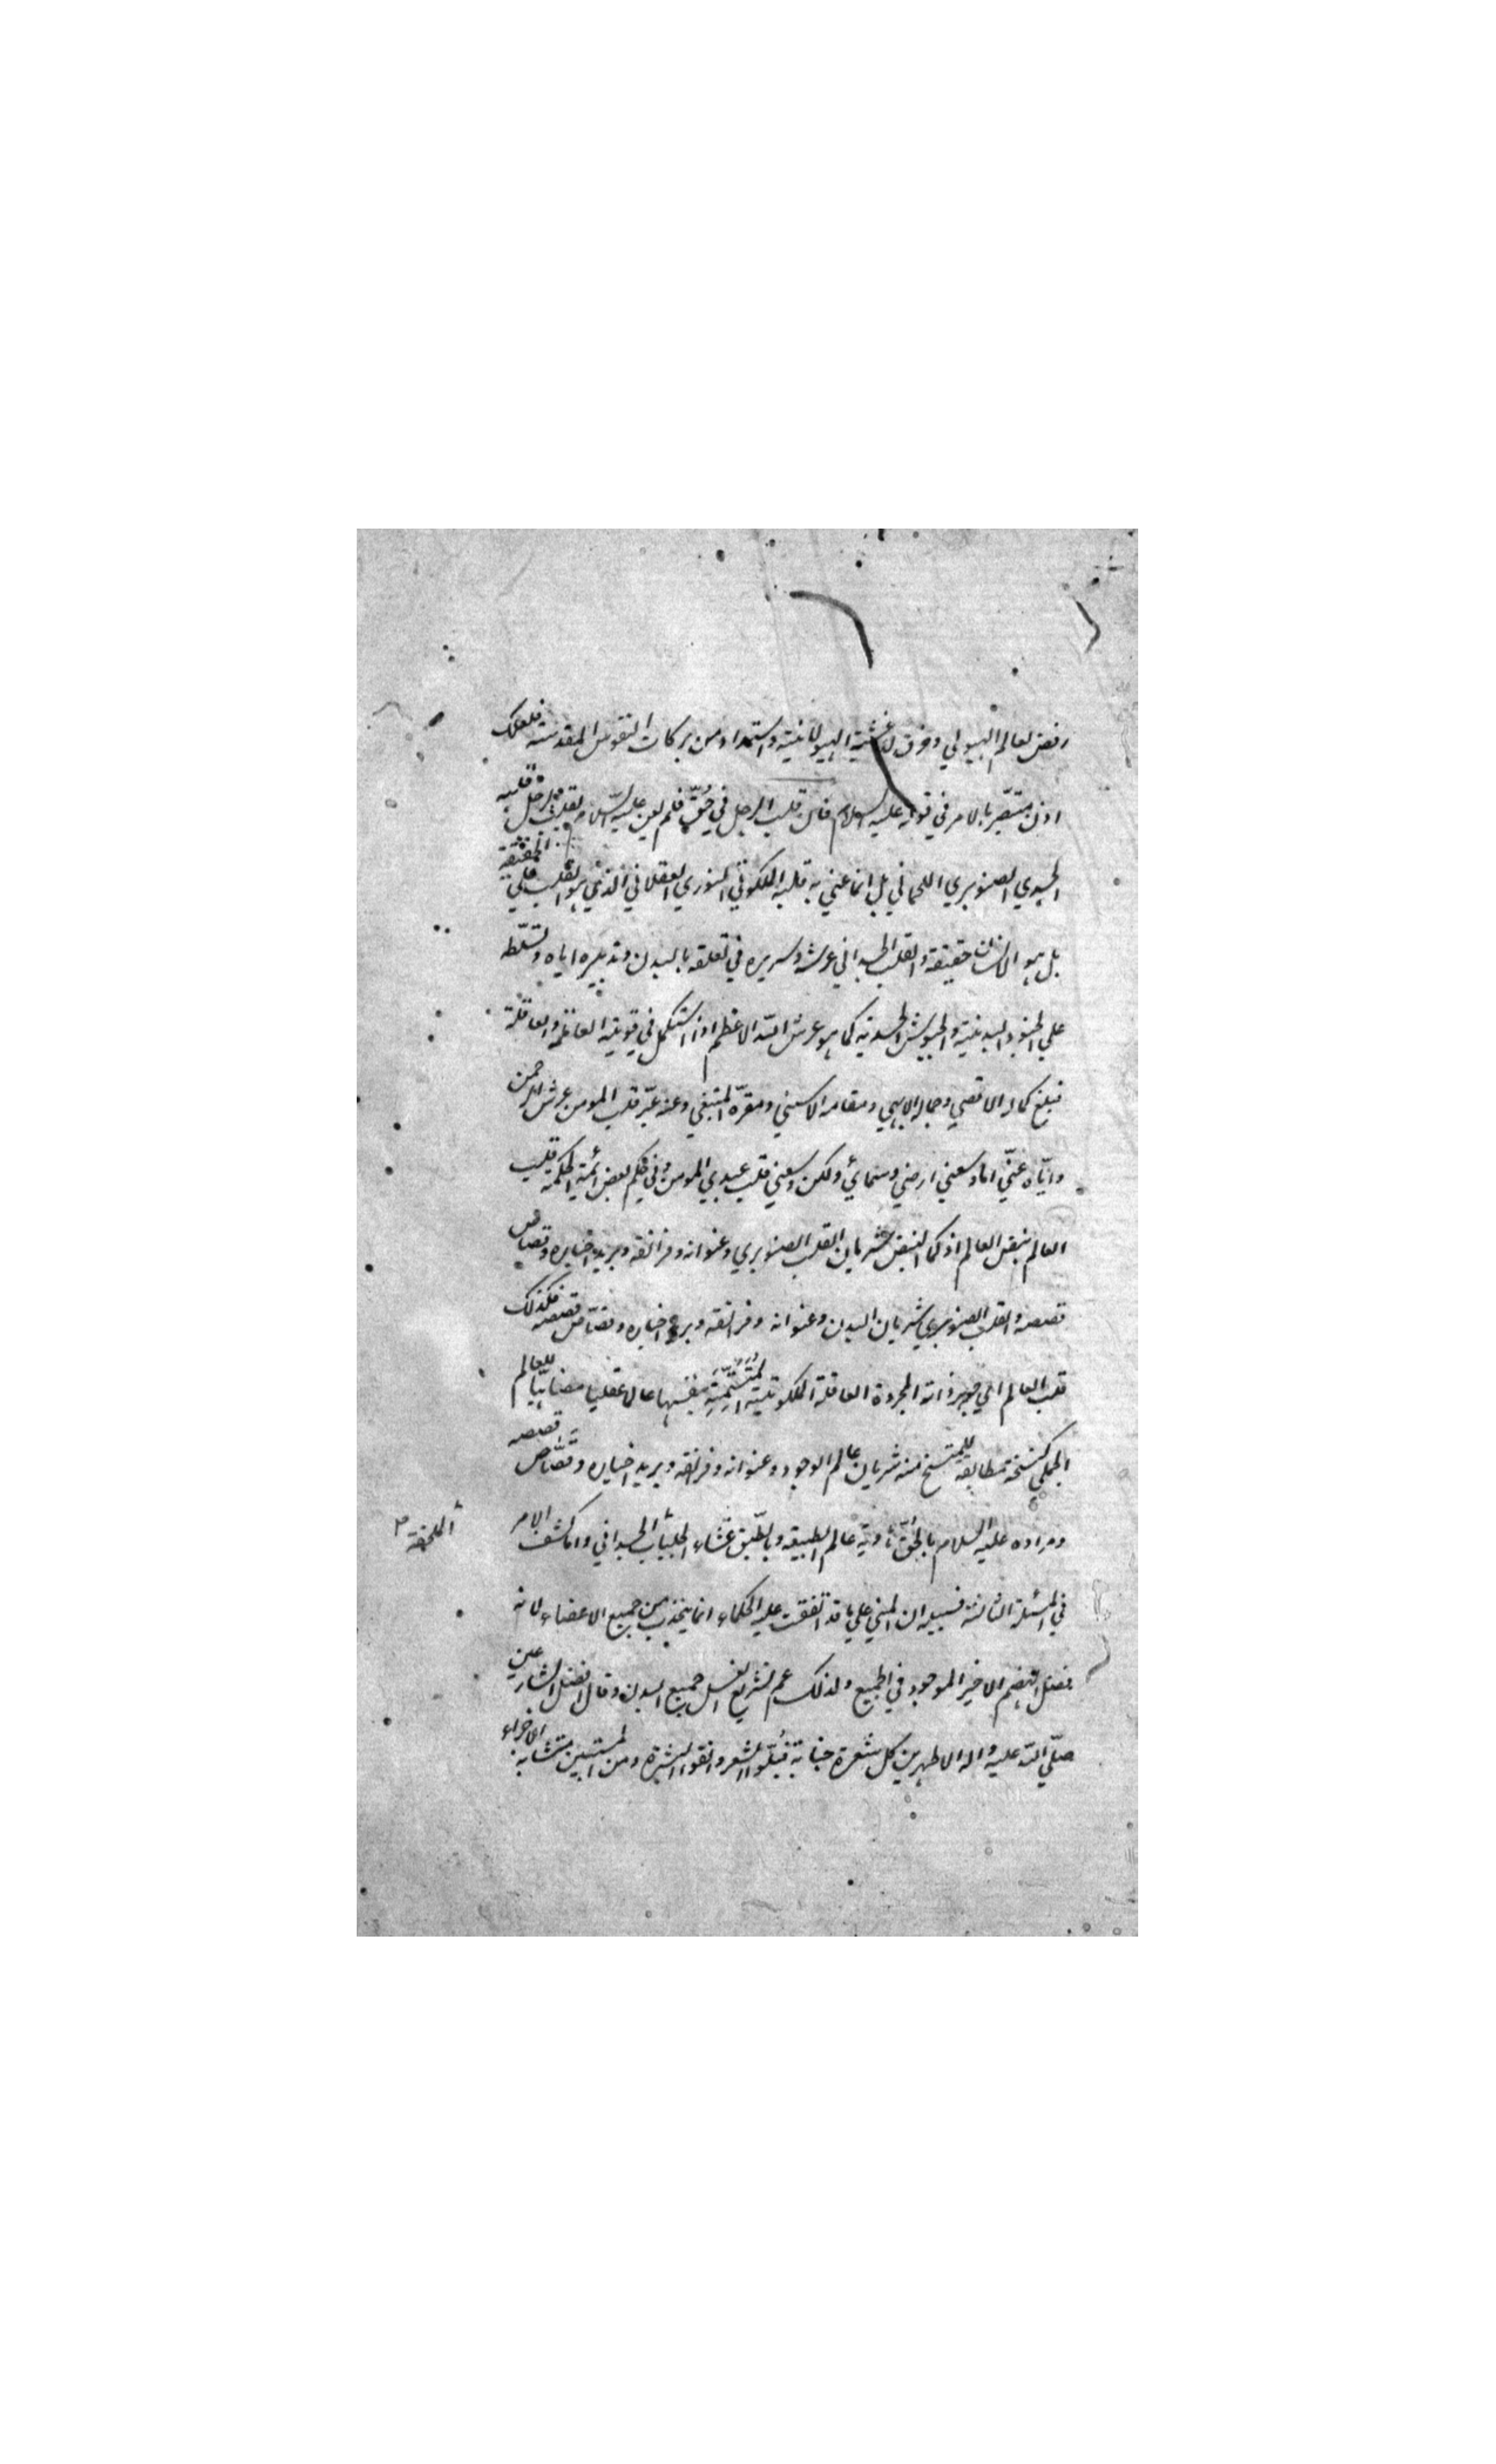 رفض لعالم الهيولي وخرق للاغشية الهيولانية واستمداد من بركات النفوس المقدسة فلعلك
اذن متبصر بالامر في قوله عليه السلام فان قلب الرجل في حُقّ فلم يعن عليه السّلام بقلب الرجل قلبه
الجسدي الصنوبري اللحماني بل انما عني به قلبه الملكوتي النوري العقلاني الذي هو القلب علي الحقيقة
بل هو الانسان حقيقة والقلب الجسداني عرشه وسريره في تعلقه بالبدن وتدبيره اياه وتسلّطه
علي الجنود البدنية والجيوش الجسدية كما هو عرش الله الاعظم اذا استكمل في قوتيه العالمة والعاملة
فبلغ كماله الاقصي وجماله الابهي ومقامه الاسني ومقرّه المبتغي وعنه عبّر قلب المومن عرش الرحمن
وايّاه عنّي اما وسعني ارضي وسمائي ولكن وسعني قلب عبدي المومن وفي حكم بعض ائمة الحكمة قلب
العالم نبض العالم اذ كما النبض شريان القلب الصنوبري وعنوانه وفرانقه وبريد اخباره وقصاص
قصصه والقلب الصنوبري شريان البدن وعنوانه وفرانقه وبريد اخباره وقصّاص قصصه فكذلك
قلب العالم اي جوهر ذاته المجردة العاقلة الملكوتية بنفسها عالما عقليا مضاهيا للعالم
الجملي كنسخة مطابقة منه شريان عالم الوجود وعنوانه وفرانقه وبريد اخباره وقصّاص قصصه
ومراده عليه السلام بالحُقّ تأدية عالم الطبيعة وبالطّبق غشاء الجلباب الجسداني واما كشف الامر
في المسئلة الثالثة فسبيله ان المني علي ما قد اتفقت عليه الحكماء انما ينجذب من جميع الاعضاء لانه
فضل الهضم الاخير الموجود في الجميع ولذلك عمم تشريع الغسل جميع البدن وقال افضل الشارعين
صلّي الله عليه واله الاطهرين كل شعرة جنابة فبُلّوا الشعر وانقوا البشرة ومن المستبين تشابه الاجزاء